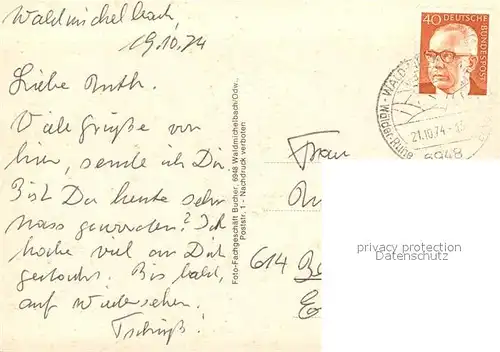 Waldmichelbach,
19.10.74
Liebe Ruth.
Viele Grüße von
hier, sende ich Dir.
Bist Du heute sehr
nass geworden? Ich
habe viel an Dich
gedacht. Bis bald,
auf Wiedersehen.
Tschüß!
Foto-Fachgeschäft Bucher, 6948 Waldmichelbach/Odw.,
Poststr. 1 - Nachdruck verboten
40 DEUTSCHE
BUNDESPOST
21.10.74
6948
Frau
614
privacy protection
Datenschutz